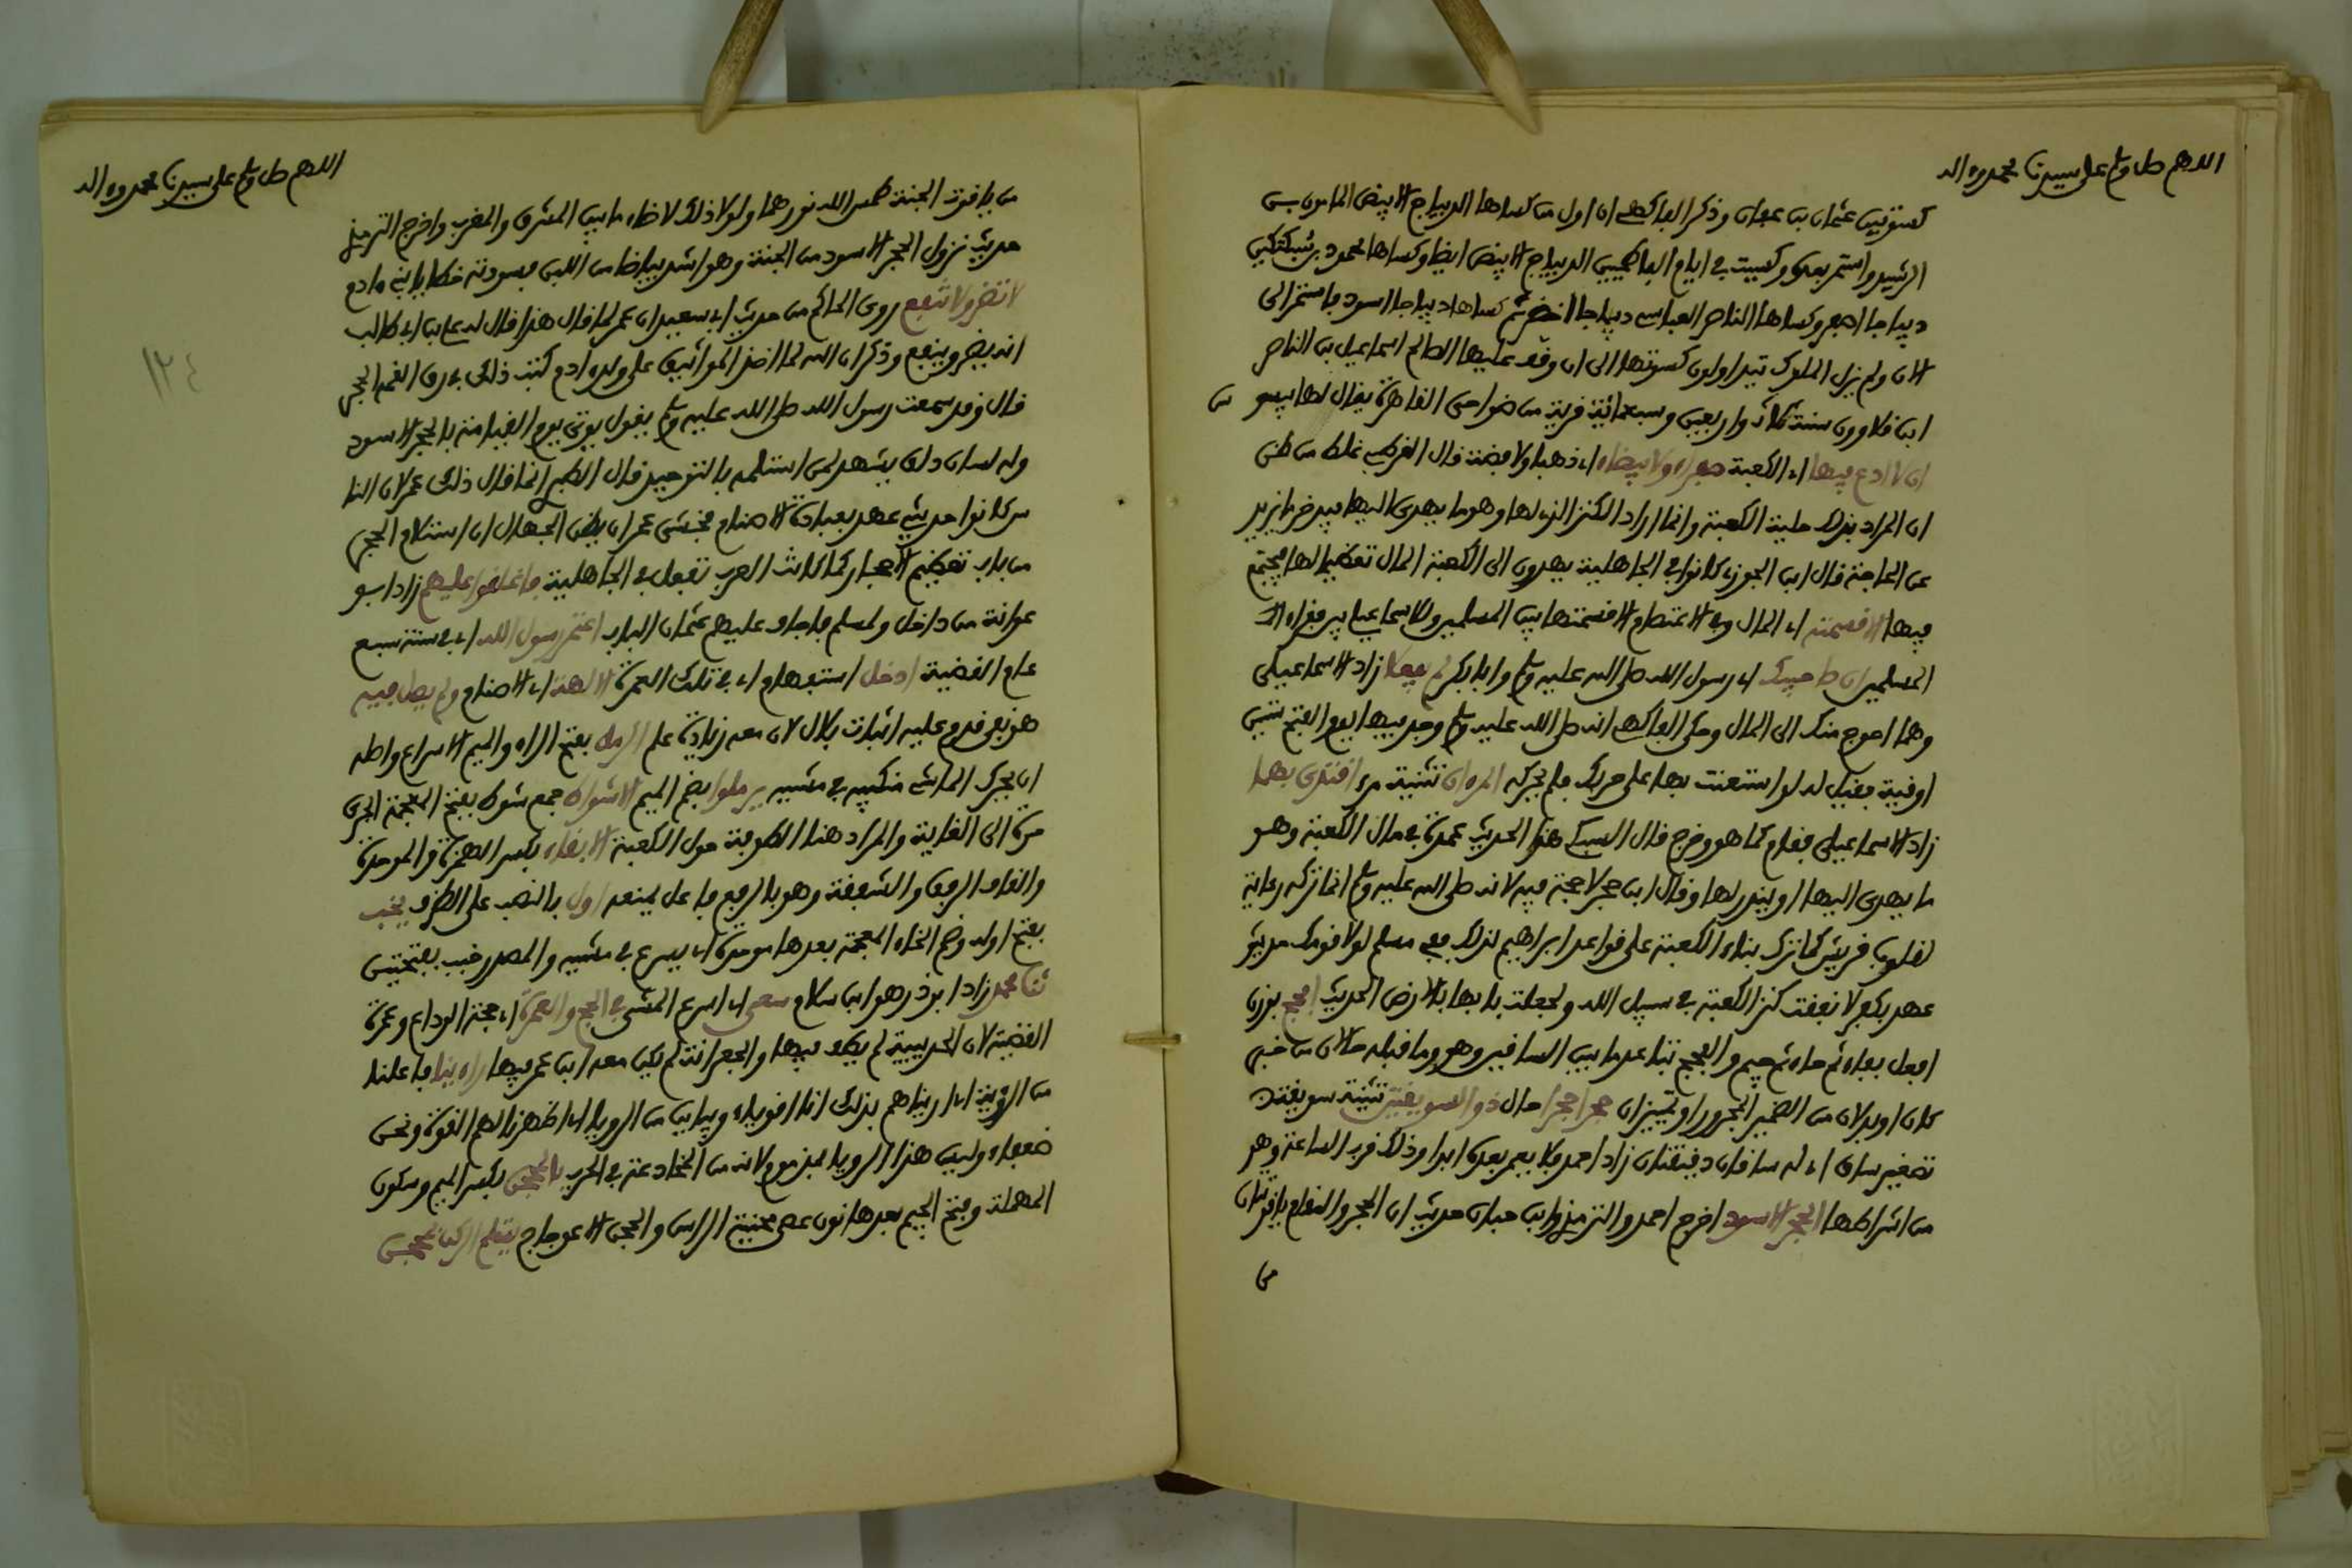 اللهم صل وسلم على سيدنا محمد وءاله
كسوتين عثمان بن عفان وذكر الفاكهي ان اول من كساها الديباج الابيض المامون بن
الرشيد واستمر بعده وكسيت في ايام الفاطميين الديباج الابيض ايضا وكساها محمود بن سبكتكين
ديباجا اصفر وكساها الناصر العباسي ديباجا اخضر ثم كساها ديباجا اسود فاستمر الى
الان ولم يزل الملوك يتداولون كسوتها الى ان وقف عليها الصالح اسماعيل بن الناصر
ابن قلاوون سنة ثلاث واربعين وسبعمائة قرية من ضواحي القاهرة يقال لها بيسو س
ان لا ادع فيها اي الكعبة صفراء ولا بيضاء اي ذهبا ولا فضة قال القرطبي غلط من ظن
ان المراد بذلك حلية الكعبة وانما اراد الكنز الذي لها وهو ما يهدى اليها فيدخر ما يزيد
عن الحاجة قال ابن الجوزي كانوا في الجاهلية يهدون الى الكعبة المال تعظيما لها فيجتمع
فيها الا قسمته اي المال وفي الاعتصام الا قسمتها بين المسلمين وللاسماعيلي بين فقراء
المسلمين ان صاحبيك اي رسول الله صلى الله عليه وسلم وابا بكر لم يفعلا زاد الاسماعيلي
وهما احوج منك الى المال وحكى الفاكهي انه صلى الله عليه وسلم وجد فيها يوم الفتح ستين
اوقية فقيل له لو استعنت بها على حربك فلم يحركه المرءان تثنية مرء اقتدي بهما
زاد الاسماعيلي فقام كما هو وخرج قال السبكي هذا الحديث عمدة في مال الكعبة وهو
ما يهدى اليها او ينذر لها وقال ابن حجر لا حجة فيه لانه صلى الله عليه وسلم انما تركه رعاية
لقلوب قريش كما ترك بناء الكعبة على قواعد ابراهيم لذلك ففي مسلم لولا قومك حديثو
عهد بكفر لانفقت كنز الكعبة في سبيل الله ولجعلت بابها بالارض الحديث افحج بوزن
افعل بفاء ثم حاء ثم جيم والفحج تباعد ما بين الساقين وهو وما قبله حالان من خبر
كان او بدلان من الضمير المجرور او تمييزان حجرا حجرا حال ذو السويقتين تثنية سويقة
تصغير ساق اي له ساقان دقيقتان زاد احمد فلا يعمر بعده ابدا وذلك قرب الساعة وهو
من اشراطها الحجر الاسود اخرج احمد والترمذي وابن حبان حديث ان الحجر والمقام ياقوتتان
من
اللهم صل وسلم على سيدنا محمد وءاله
من ياقوت الجنة طمس الله نورهما ولولا ذلك لاضاء ما بين المشرق والمغرب واخرج الترمذي
حديث نزول الحجر الاسود من الجنة وهو اشد بياضا من اللبن فسودته خطايا بني ءادم
لا تضر ولا تنفع روى الحاكم من حديث ابي سعيد ان عمر لما قال هذا قال له علي بن ابي طالب
انه يضر وينفع وذكر ان الله لما اخذ المواثيق على ولد ءادم كتب ذلك في رق القمه الحجر
قال وقد سمعت رسول الله صلى الله عليه وسلم يقول يوتى يوم القيامة بالحجر الاسود
وله لسان دلق يشهد لمن استلمه بالتوحيد قال الطبري انما قال ذلك عمر لان النا
س كانوا حديثي عهد بعبادة الاصنام فخشي عمر ان يظن الجهال ان استلام الحجر
من باب تعظيم الاحجار كما كانت العرب تفعل في الجاهلية فاغلقوا عليهم زاد ابو
عوانة من داخل ولمسلم فاجاف عليهم عثمان الباب اعتمر رسول الله اي في سنة سبع
عام القضية ادخل استفهام اي في تلك العمرة الالهة اي الاصنام ولم يصل فيه
هو نفي قدم عليه اثبات بلال لان معه زيادة علم الرمل بفتح الراء والميم الاسراع واصله
ان يحرك الماشي منكبيه في مشيه يرملوا بضم الميم الاشواط جمع شوط بفتح المعجمة الجري
مرة الى الغاية والمراد هنا الطوفة حول الكعبة الابقاء بكسر الهمزة والموحدة
والقاف الرفق والشفقة وهو بالرفع فاعل يمنعه اول بالنصب على الظرف يخب
بفتح اوله وضم الخاء المعجمة بعدها موحدة اي يسرع في مشيه والمصدر خبب بفتحتين
ثنا محمد زاد ابو ذر هو ابن سلام سعى اي اسرع المشي في الحج والعمرة اي حجة الوداع وعمرة
القضية لان الحديبية لم يطف فيها والجعرانة لم يكن معه ابن عمر فيها راءينا فاعلنا
من الرؤية اي اريناهم بذلك انا اقوياء وبيايين من الرويا اي اظهرنا لهم القوة ونحن
ضعفاء وليس هذا الرويا بمذموم لانه من المخادعة في الحرب بالمحجن بكسر الميم وسكون
المهملة وفتح الجيم بعدها نون عصى محنية الراس والحجن الاعوجاج يستلم الركن بمحجن
١٢٤